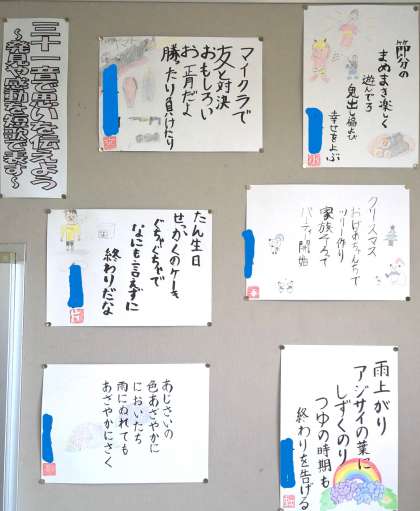 三十一音で思いを伝えよう
〜発見や感動を短歌で表す〜
節分の
まめまき楽しく
遊んでろ
鬼出し福よび
幸せを上ぶ
マイクラで
友と対決
おもしろい
お正月だよ
勝ったり負けたり
クリスマス
おばあちゃんちで
ツリー作り
家族みんなで
パーティ開始
たん生日
せっかくのケーキ
ぐちゃぐちゃで
なにも言えずに
終わりだな
雨上がり
アジサイの葉に
しずくのり
つゆの時期も
終わりを告げる
あじさいの
色あざやかに
においたち
雨にぬれても
あざやかにさく